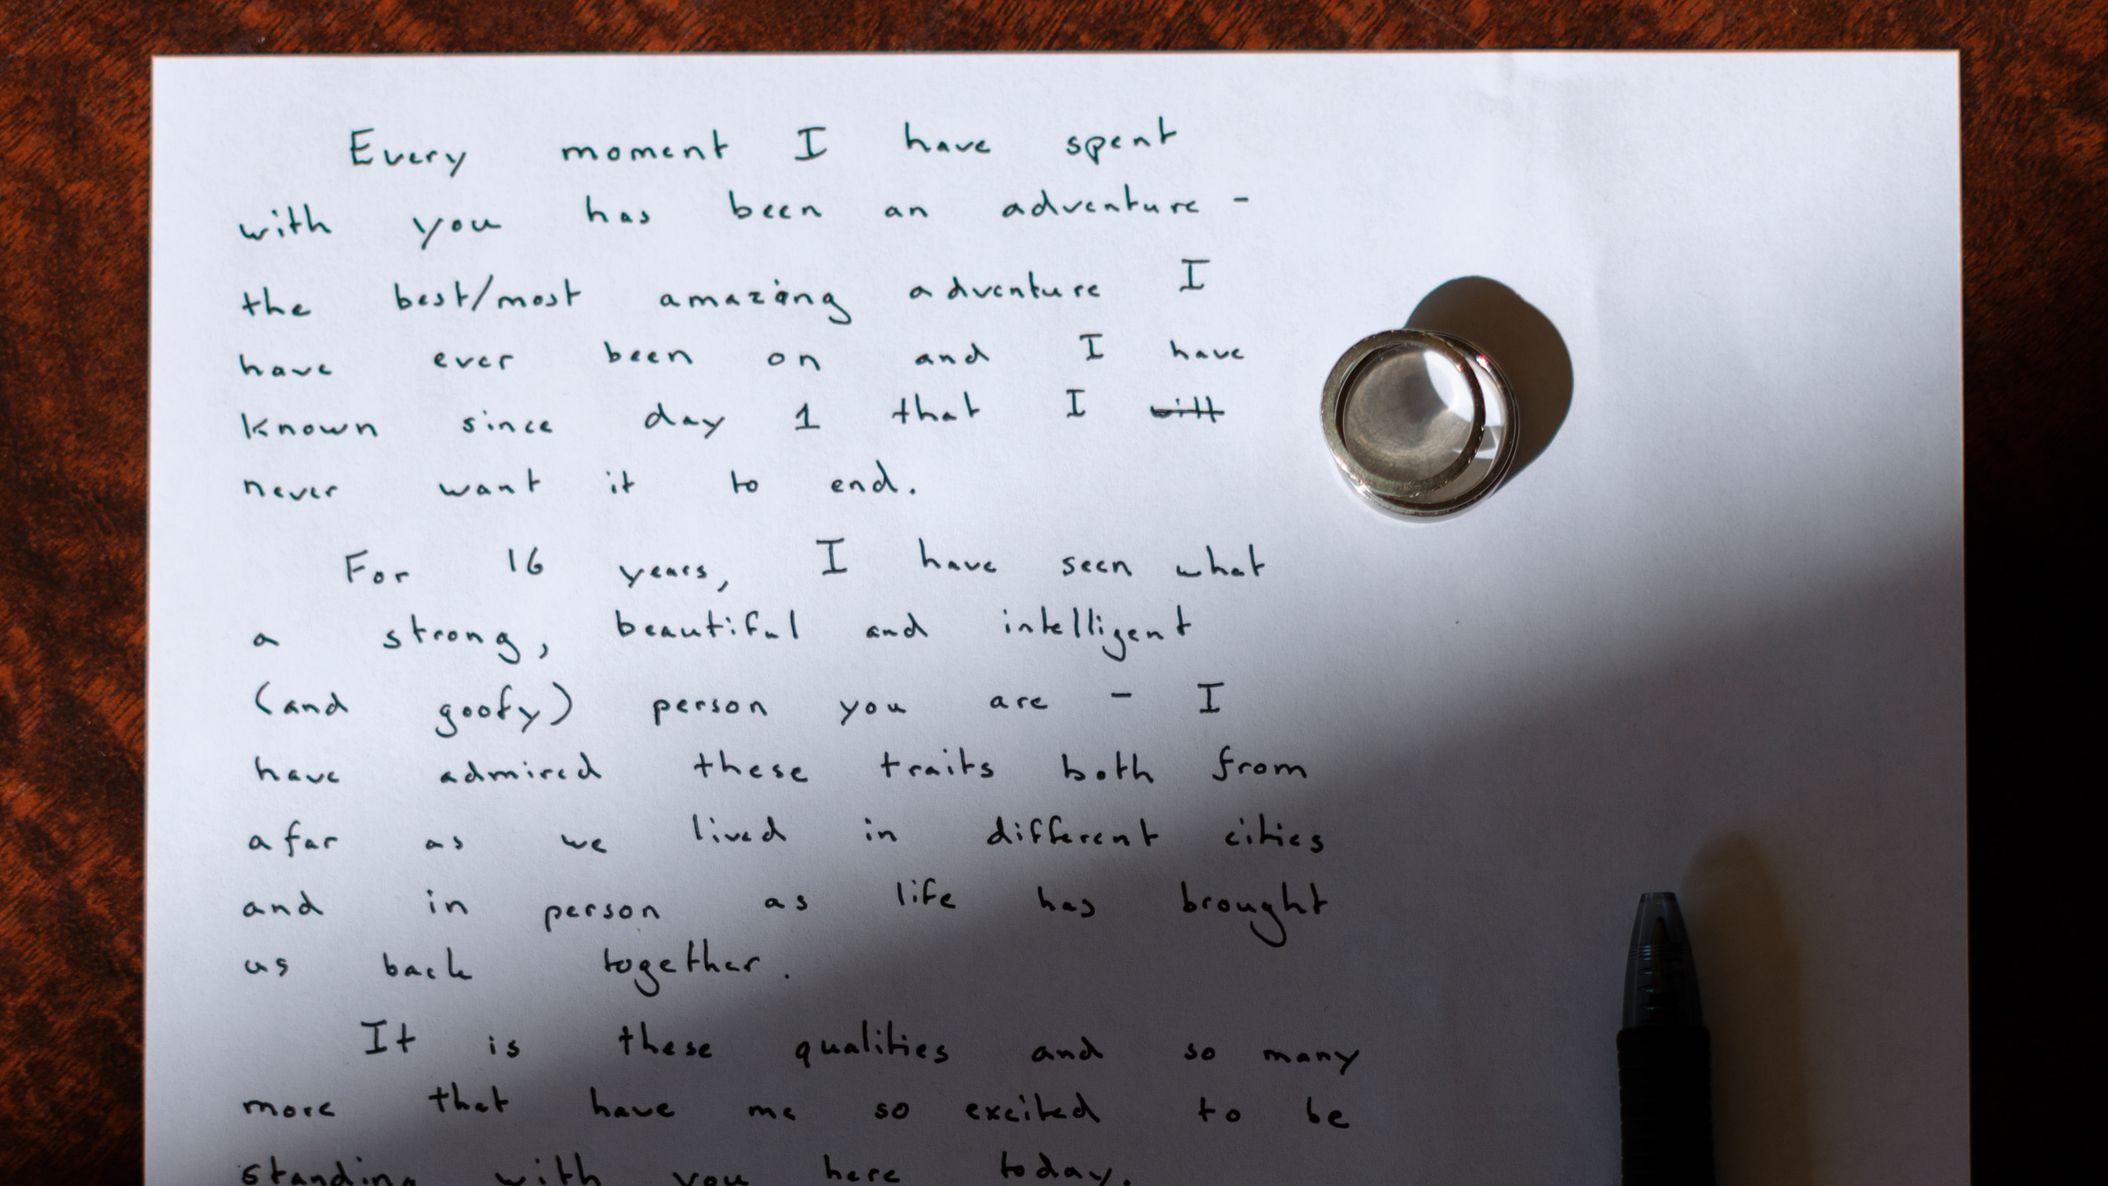 Every moment I have spent
with you has been an adventure -
the best/most amazing adventure I
have ever been on and I have
known since day 1 that I will
never want it to end.
For 16 years, I have seen what
a strong, beautiful and intelligent
(and goofy) person you are - I
have admired these traits both from
afar as we lived in different cities
and in person as life has brought
us back together.
It is these qualities and so many
more that have me so excited to be
standing with you here today.